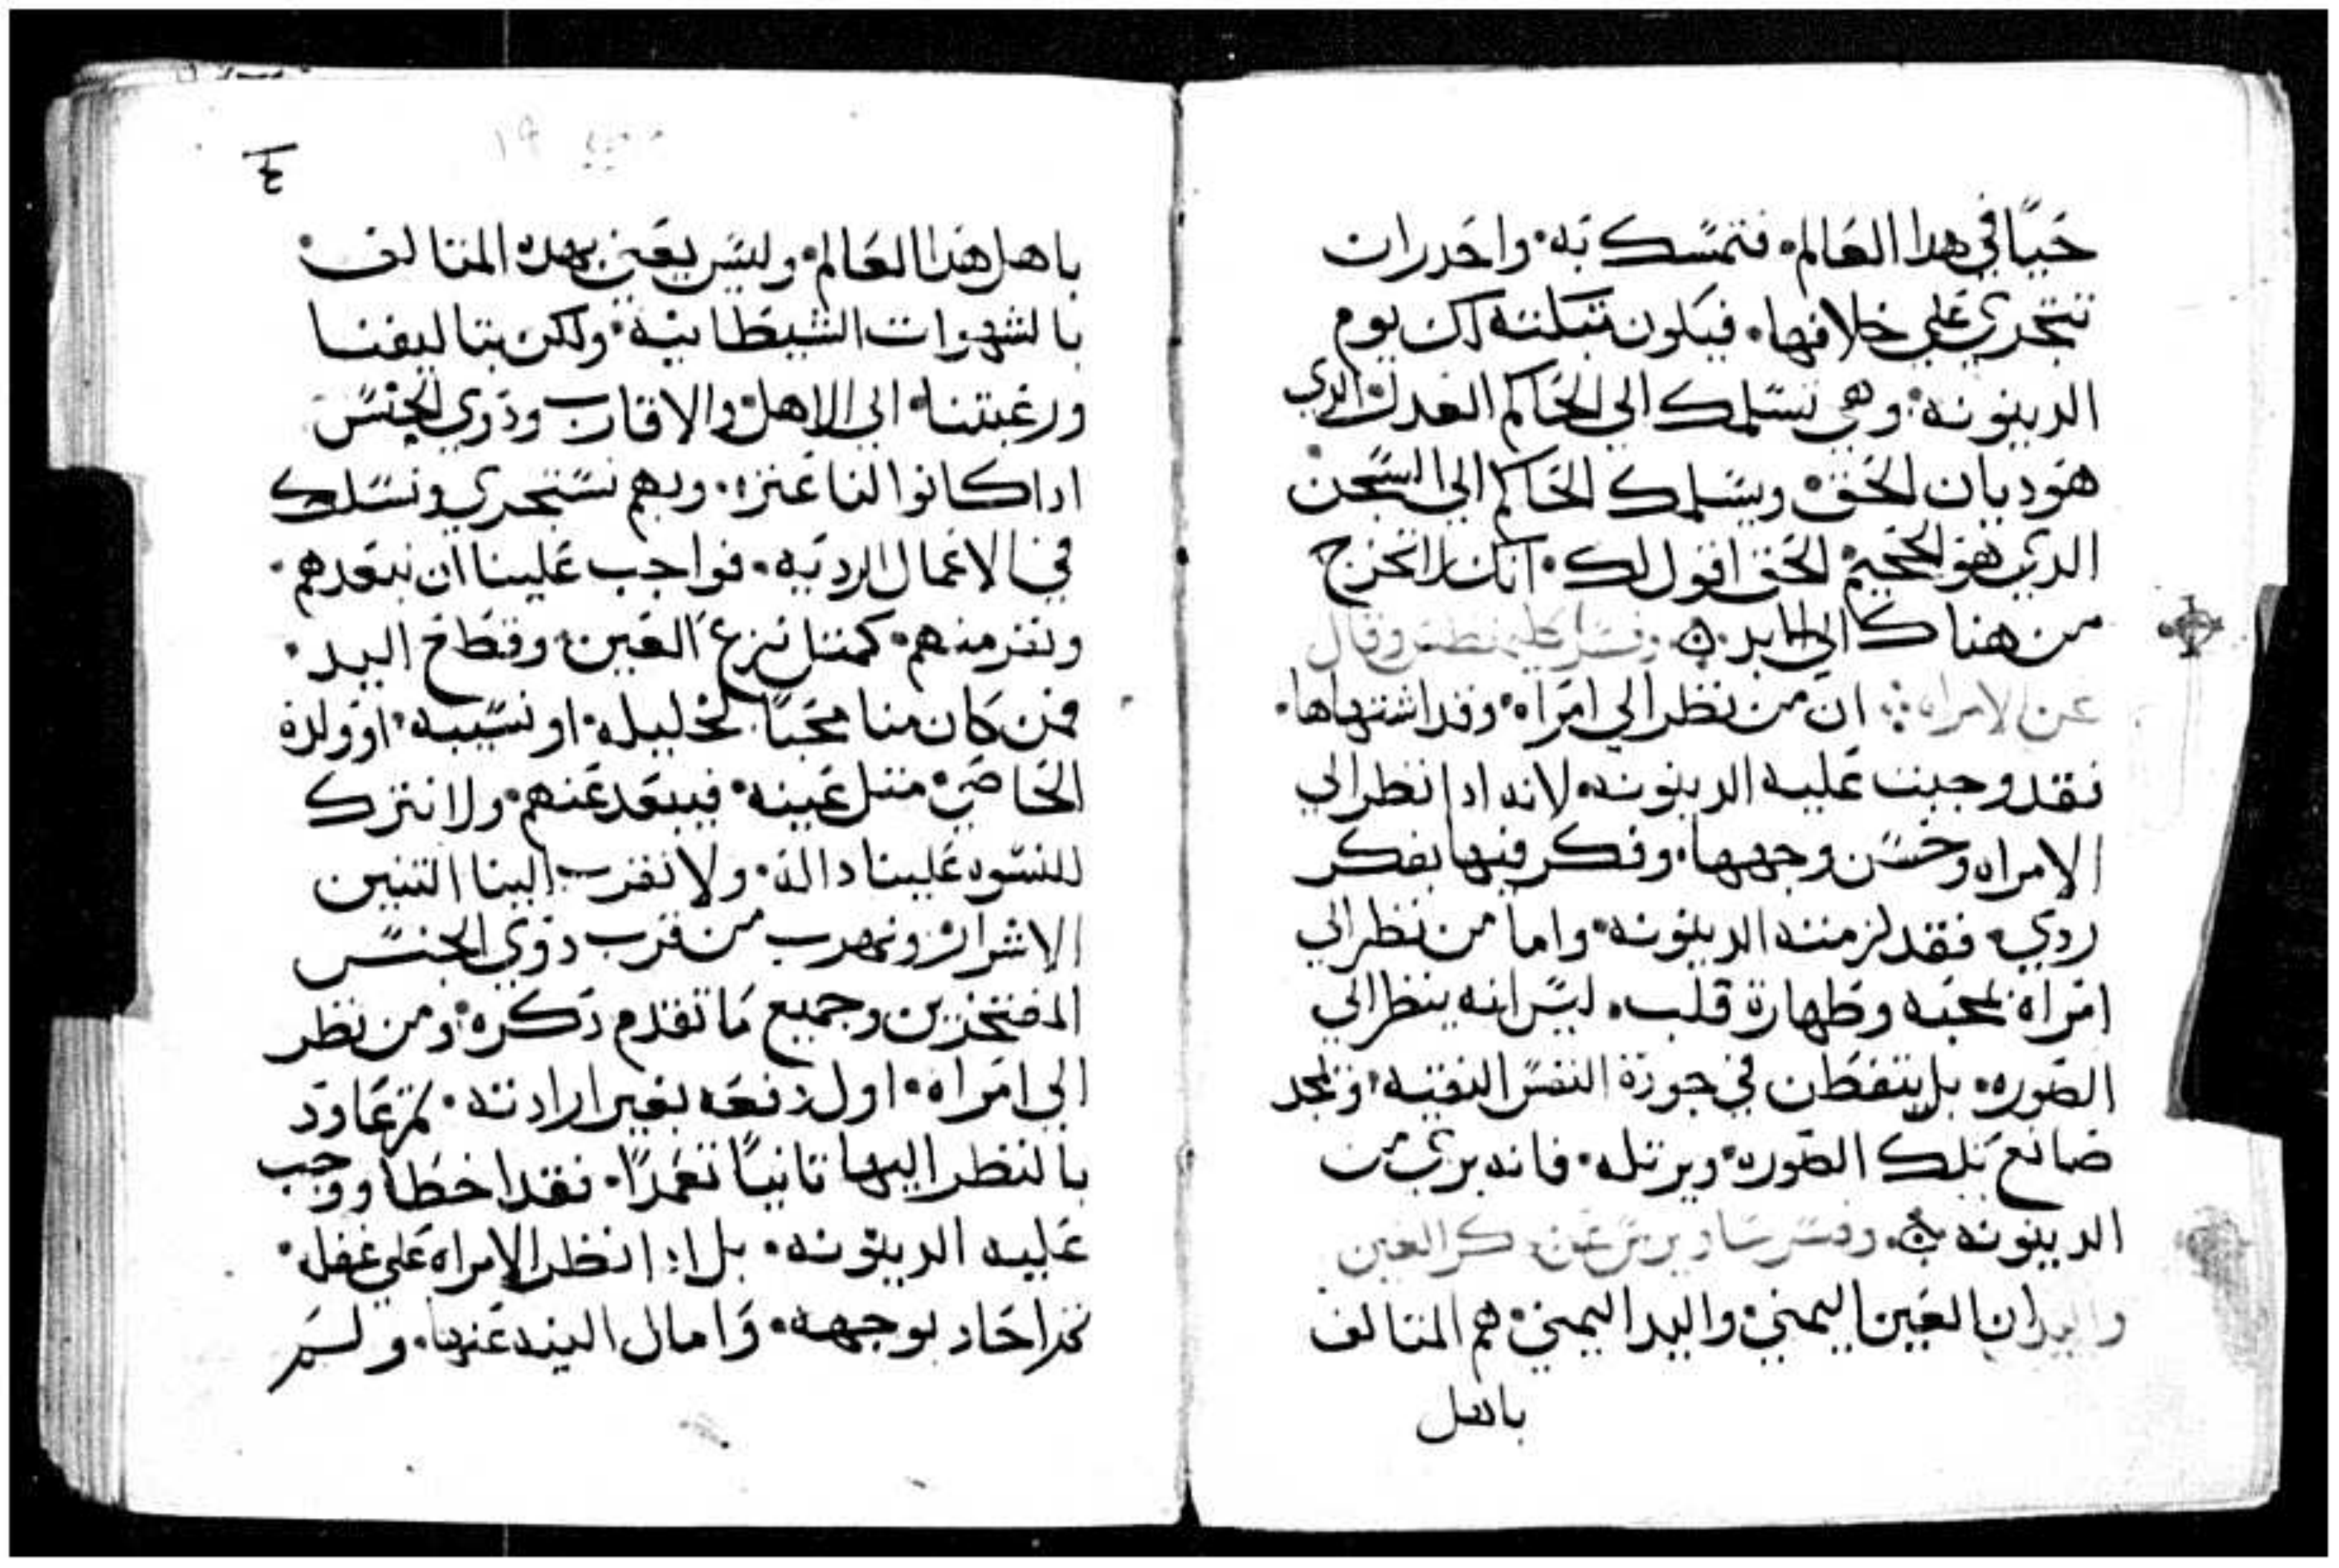 حيًا في هدا العالم. فتمسك به. واحدر ان
تتجري علي خلافها. فيكون تبكتك يوم
الدينونه. وهي تسلمك الي الحاكم العدل الدي
هو ديان الحق. ويسلمك الحاكم الي السجن
الدي هو الجحيم. الحق اقول لك. انك لا تخرج
من هناك الي الابد. وفسر اكليمنطس وقال
عن الامراه. ان من نظر الي امراه. وقد اشتهاها.
فقد وجبت عليه الدينونه. لانه ادا نظر الي
الامراه وحسن وجهها. وفكر فيها بفكر
ردي. فقد لزمته الدينونه. واما من نظر الي
امراة بمحبه وطهارة قلب. ليس انه ينظر الي
الصوره. بل يتفطن في جودة النفس النقيه. وتمجد
صانع تلك الصوره. ويرتله. فانه بري من
الدينونه. وفسر ساويرس عن دكر العين
واليد ان العين اليمني. واليد اليمني. هم المتالف
باهل
٤
باهل هدا العالم. وليس يعني بهده المتالف.
بالشهوات الشيطانيه. ولكن بتاليفنا
ورغبتنا. الي الاهل والاقارب ودوي الجنس
اداكانوا لنا عثره. وبهم نستجري ونسلك
في الاعمال الرديه. فواجب علينا ان نبعدهم.
ونفر منهم. كمتل نزع العين. وقطاع اليد.
فمن كان منا محبًا لخليله. او نسيبه. او ولده
الخاصي. متل عينه. فيبعد عنهم. ولا نترك
للنسوه علينا دالة. ولا نقرب الينا التنين
الاشرار. ونهرب من قرب دوي الجنس
المفتخرين وجميع ما تقدم دكره. ومن نظر
الي امراه. اول دفعه بغير ارادته. تم عاود
بالنظر اليها تانيًا تعمدًا. فقد اخطا ووجب
عليه الدينونه. بل ادا نظر الامراه علي غفله.
تم احاد بوجهه. وامال اليد عنها. ولم